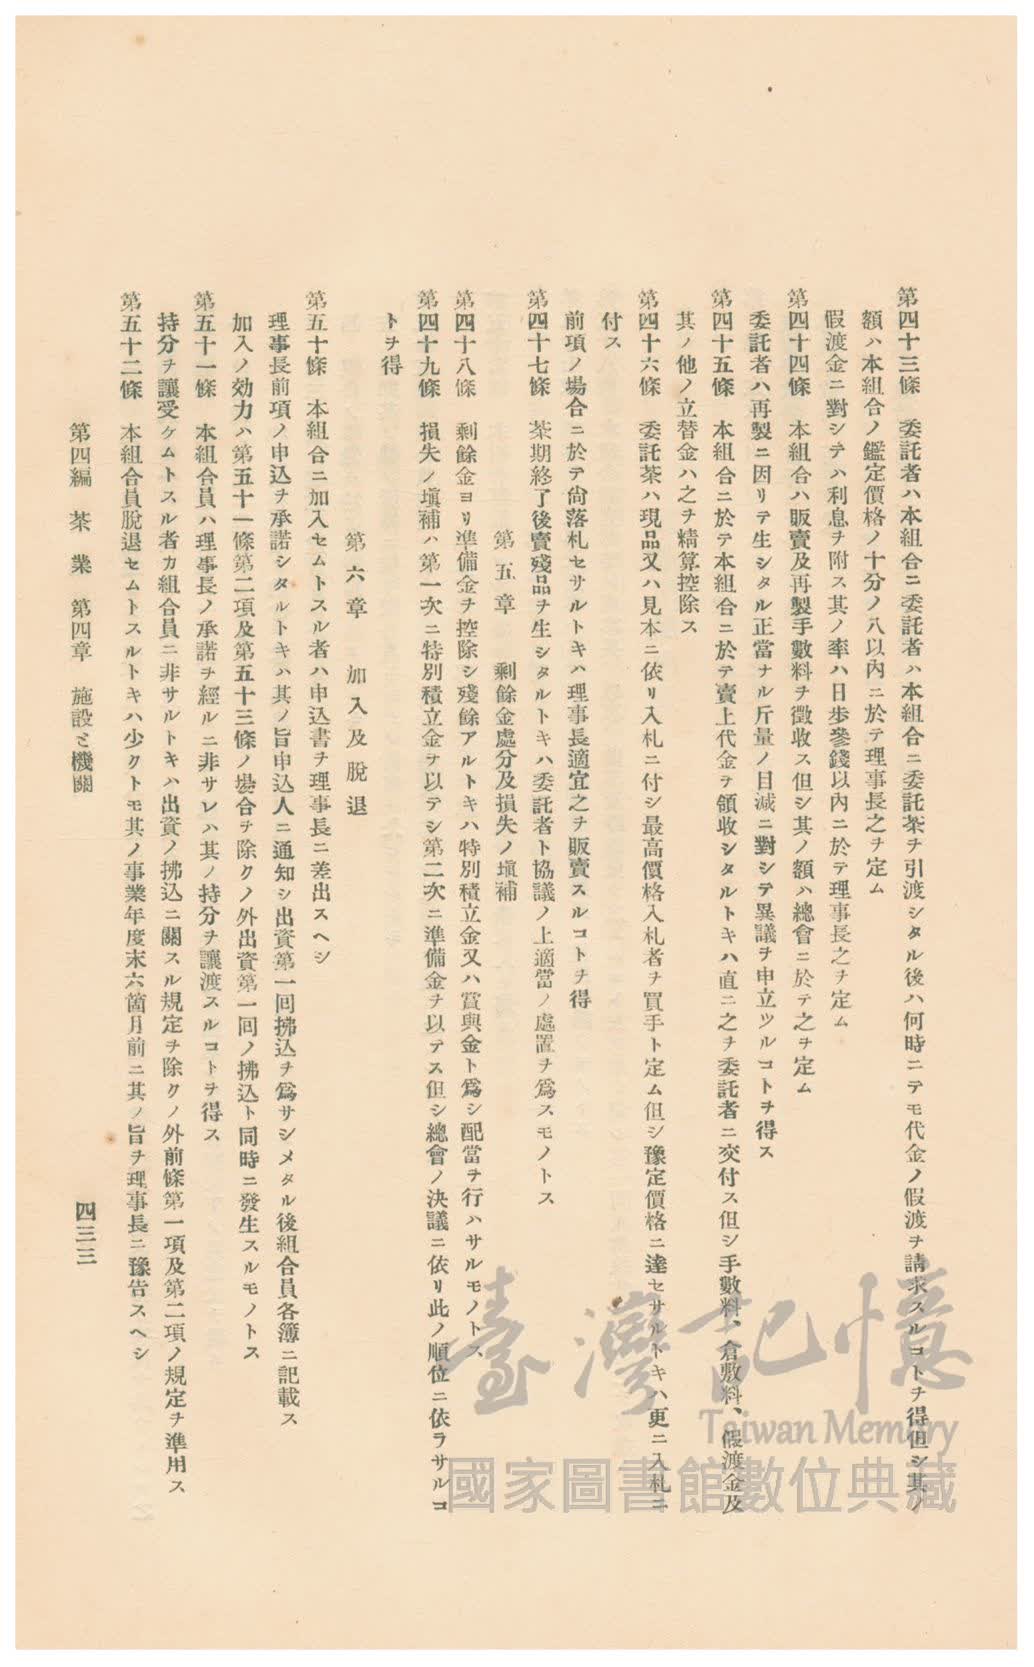 第四十三條　委託者ハ本組合ニ委託者ハ本組合ニ委託茶ヲ引渡シタル後ハ何時ニテモ代金ノ假渡ヲ請求スルコトヲ得但シ其ノ
額ハ本組合ノ鑑定價格ノ十分ノ八以內ニ於テ理事長之ヲ定ム
假渡金ニ對シテハ利息ヲ附ス其ノ率ハ日步參錢以內ニ於テ理事長之ヲ定ム
第四十四條　本組合ハ販賣及再製手數料ヲ徵收ス但シ其ノ額ハ總會ニ於テ之ヲ定ム
委託者ハ再製ニ因リテ生シタル正當ナル斤量ノ目減ニ對シテ異議ヲ申立ツルコトヲ得ス
第四十五條　本組合ニ於テ本組合ニ於テ賣上代金ヲ領收シタルトキハ直ニ之ヲ委託者ニ交付ス但シ手數料、倉敷料、假渡金及
其ノ他ノ立替金ハ之ヲ精算控除ス
第四十六條　委託茶ハ現品又ハ見本ニ依リ入札ニ付シ最高價格入札者ヲ買手ト定ム但シ豫定價格ニ達セサルトキハ更ニ入札ニ
付ス
前項ノ場合ニ於テ尙落札セサルトキハ理事長適宜之ヲ販賣スルコトヲ得
第四十七條　茶期終了後賣殘品ヲ生シタルトキハ委託者ト協議ノ上適當ノ處置ヲ爲スモノトス
第五章　剩餘金處分及損失ノ塡補
第四十八條　剩餘金ヨリ準備金ヲ控除シ殘餘アルトキハ特別積立金又ハ賞與金ト爲シ配當ヲ行ハサルモノトス
第四十九條　損失ノ塡補ハ第一次ニ特別積立金ヲ以テシ第二次ニ準備金ヲ以テス但シ總會ノ決議ニ依リ此ノ順位ニ依ラサルコ
トヲ得
第六章　加入及脫退
第五十條　本組合ニ加入セムトスル者ハ申込書ヲ理事長ニ差出スヘシ
理事長前項ノ申込ヲ承諾シタルトキハ其ノ旨申込人ニ通知シ出資第一回拂込ヲ爲サシメタル後組合員各簿ニ記載ス
加入ノ効力ハ第五十一條第二項及第五十三條ノ場合ヲ除クノ外出資第一回ノ拂込ト同時ニ發生スルモノトス
第五十一條　本組合員ハ理事長ノ承諾ヲ經ルニ非サレハ其ノ持分ヲ讓渡スルコトヲ得ス
持分ヲ讓受ケムトスル者カ組合員ニ非サルトキハ出資ノ拂込ニ關スル規定ヲ除クノ外前條第一項及第二項ノ規定ヲ準用ス
第五十二條　本組合員脫退セムトスルトキハ少クトモ其ノ事業年度末六箇月前ニ其ノ旨ヲ理事長ニ豫告スヘシ
第四編　茶業　第四章　施設と機關
四三三
臺灣記憶
Taiwan Memory
國家圖書館數位典藏